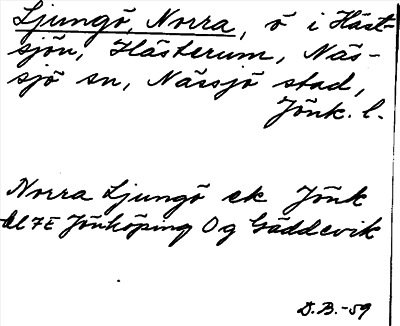 Ljungö, Norra, ö i Häst-
sjön, Hästerum, Näs-
sjö sn, Nässjö stad,
Jönk. l.
Norra Ljungö ek Jönk
bl 7E Jönköping Og Gäddevik
D.B.-59